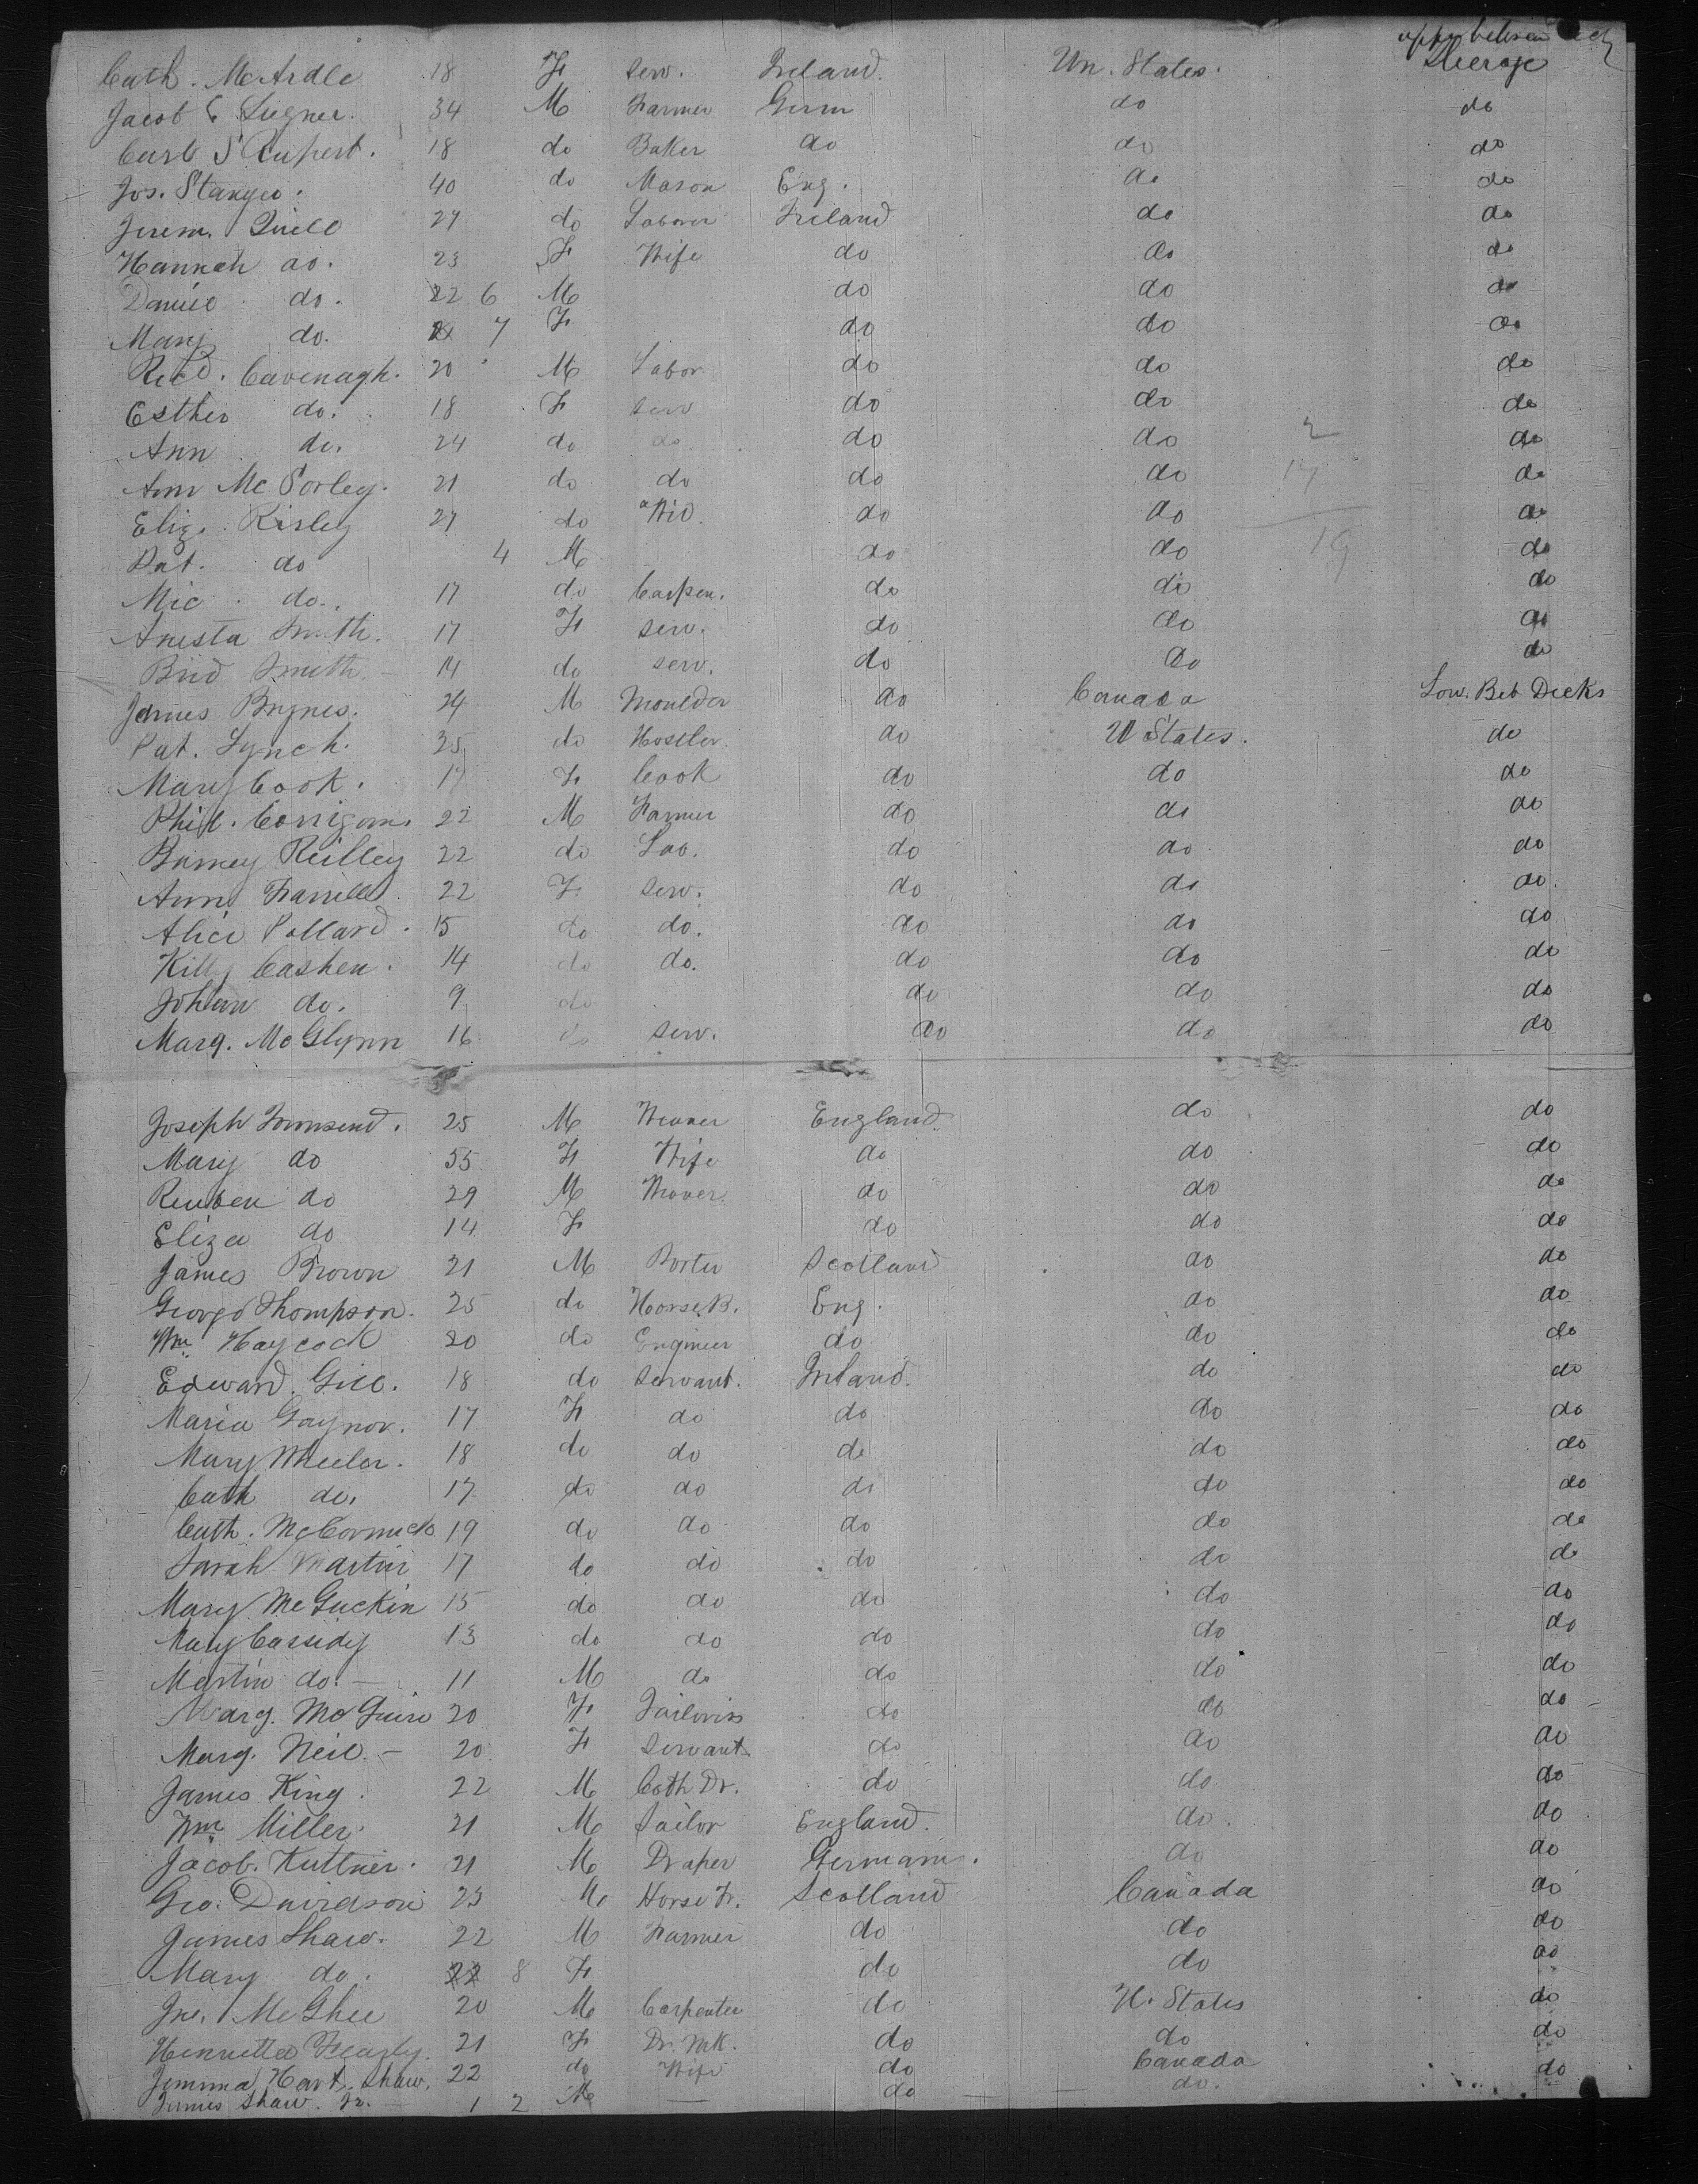 upper between deck
Cath. McArdle 18 F Serv. Ireland. Un. States. Steerage
Jacob C Liegner. 34 M Farmer Germ do do
Carl S Rupert. 18 do Baker do do do
Jos. Stanger. 40 do Mason Eng. do do
Jerem. Quill 27 do Laborer Ireland do do
Hannah do. 23 F Wife do do do
Daniel do. 22 6 M do do do
Mary do. 7 F do do do
Ricd. Cavenagh. 20 M Labor do do do
Esther do. 18 F serv do do do
Ann do. 24 do do do do 2 do
Ann McSorley. 21 do do do do 17 do
Eliz. Risley 27 do Wid. do do do
Pat. do 4 M do do 19 do
Mic do. 17 do Carpen. do do do
Anesta Smith. 17 F serv. do do do
Brid Smith. - 14 do serv. do do do
James Brynes. 24 M Moulder do Canada Low. Bet Decks
Pat. Lynch. 35 do Hostler. do U States. do
Mary Cook. 17 F Cook do do do
Phil. Corrigan. 22 M Farmer do do do
Barney Reilley 22 do Lab. do do do
Ann Farrell 22 F Serv. do do do
Alice Pollard. 15 do do. do do do
Kitty Cashen. 14 do do. do do do
Johan do. 9 do do do do
Marg. McGlynn 16 do serv. do do do
Joseph Townsend. 25 M Weaver England. do do
Mary do 55 F Wife do do do
Reuben do 29 M Weaver. do do do
Eliza do 14 F do do do
James Brown 21 M Porter Scotland do do
George Thompson. 25 do Horse B. Eng. do do
Wm. Haycock 20 do Engineer do do do
Edward. Gill. 18 do Servant. Ireland. do do
Maria Gaynor. 17 F do do do do
Mary Wheeler. 18 do do do do do
Cath do. 17 do do do do do
Cath. McCormick 19 do do do do do
Sarah Martin 17 do do do do do
Mary McGuckin 15 do do do do do
Mary Cassidy 13 do do do do do
Martin do. - 11 M do do do do
Marg. McGuire 20 F Tailoriss do do do
Marg. Neil. - 20 F Servant. do do do
James King. 22 M Coth Dr. do do do
Wm. Miller. 21 M Tailor England. do. do
Jacob. Kuttner. 21 M Draper Germany. do do
Geo. Davidson 23 M Horse Tr. Scotland Canada do
James Shaw. 22 M Farmer do do do
Mary do. 22 8 F do do do
Jno. McGhee 20 M Carpenter do U. States do
Henrietta 21 F Dr. Mk. do do do
Jemima Hart. Shaw. 22 do Wife do Canada do
James Shaw. Jr. 1 2 M — do do.